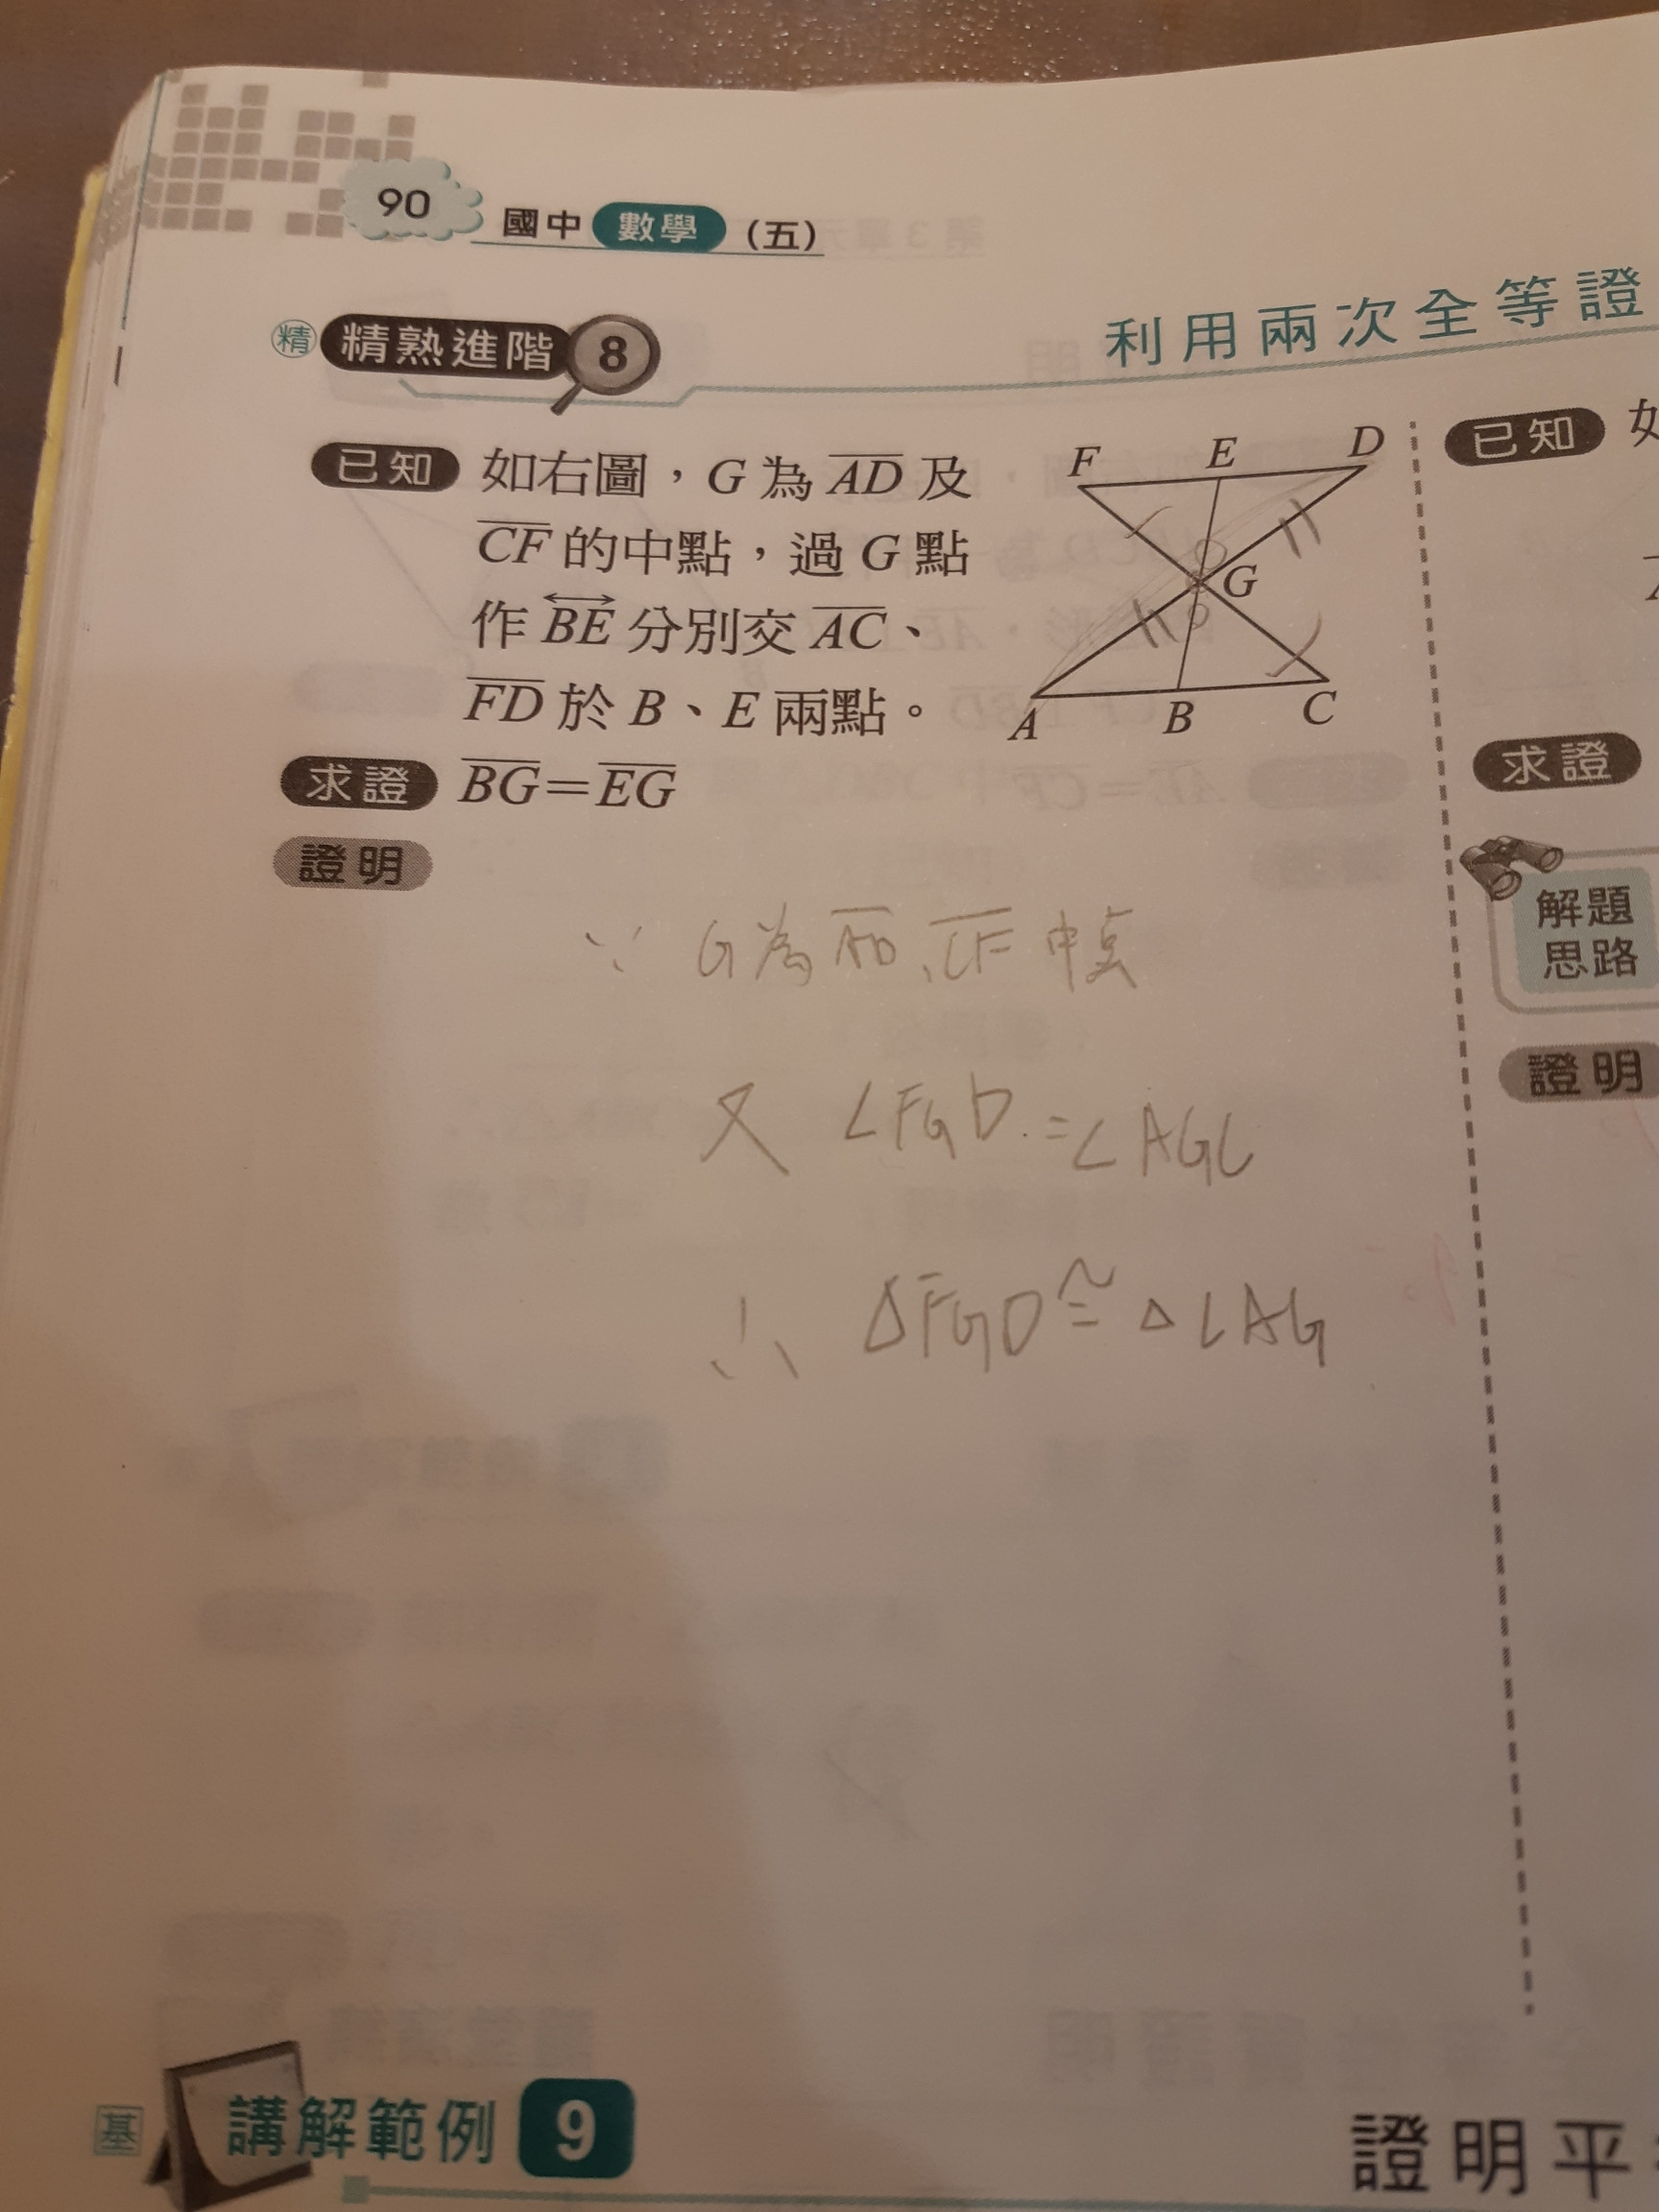 90 國中 數學 (五)
精 精熟進階 8
利用兩次全等證
已知 如右圖，G 為 AD 及
CF 的中點，過 G 點
作 BE 分別交 AC、
FD 於 B、E 兩點。
F E D
G
A B C
求證 BG=EG
證明
∵ G為 AD、CF 中点
又 ∠FGD=∠AGC
∴ △FGD≅△CAG
已知
求證
解題
思路
證明
基 講解範例 9
證明平